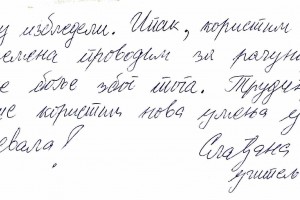 у избледели. Ипак, користим
емена проводим за рачуна
е боље због тога. Трудим
ше користим нова умења у
евала!
Слађана
учитељ